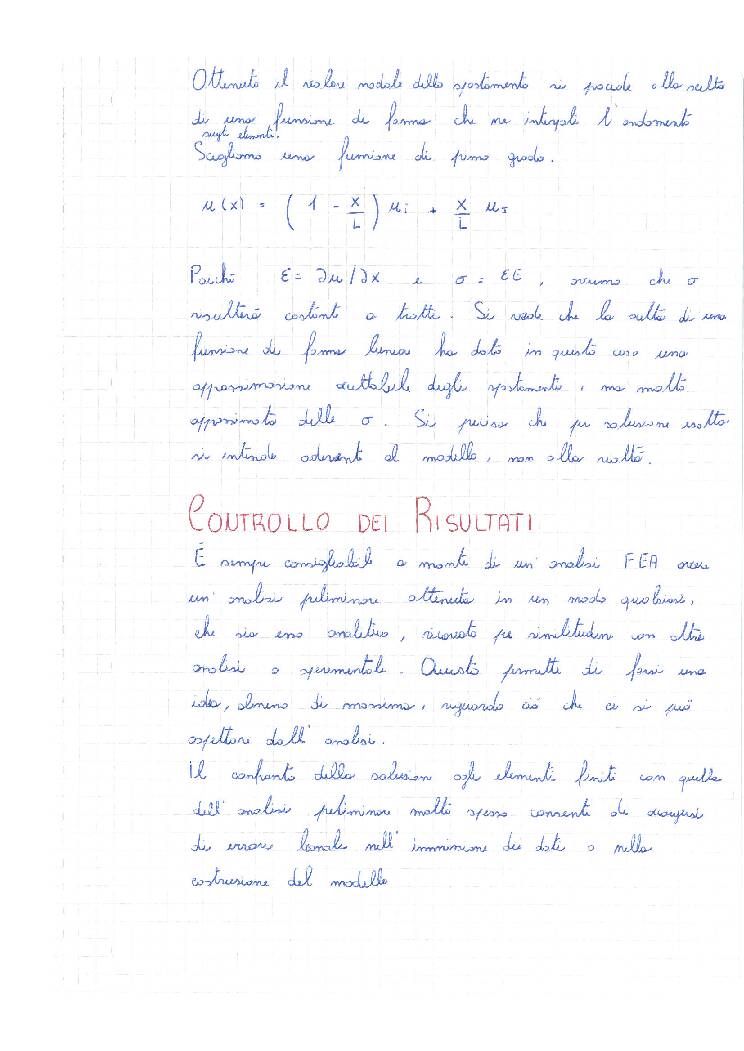 Ottenuto il valore nodale dello spostamento si procede alla scelta
di una funzione di forma che ne interpoli l'andamento
sugli elementi.
Scegliamo una funzione di primo grado.
u(x) = ( 1 - x/L ) ui + x/L uj
Poiché ε = ∂u/∂x e σ = εE, avremo che σ
risulterà costante a tratti. Si vede che la scelta di una
funzione di forma lineare ha dato in questo caso una
approssimazione accettabile degli spostamenti, ma molto
approssimata delle σ. Si precisa che per soluzione esatta
si intende aderente al modello, non alla realtà.
CONTROLLO DEI RISULTATI
È sempre consigliabile a monte di un'analisi FEA avere
un'analisi preliminare ottenuta in un modo qualsiasi,
che sia esso analitico, ricavato per similitudine con altre
analisi o sperimentale. Questo permette di farsi una
idea, almeno di massima, riguardo ciò che ci si può
aspettare dall'analisi.
Il confronto della soluzione agli elementi finiti con quella
dell'analisi preliminare molto spesso consente di accorgersi
di errori banali nell'immissione dei dati o nella
costruzione del modello